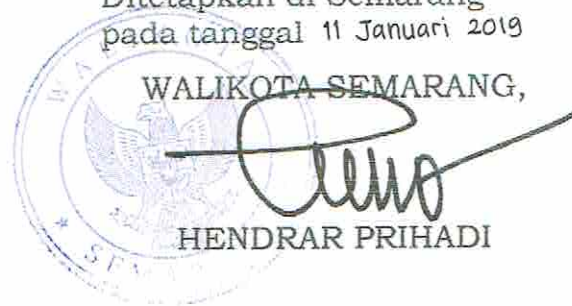 Ditetapkan di Semarang
pada tanggal 11 Januari 2019
WALIKOTA SEMARANG,
HENDRAR PRIHADI